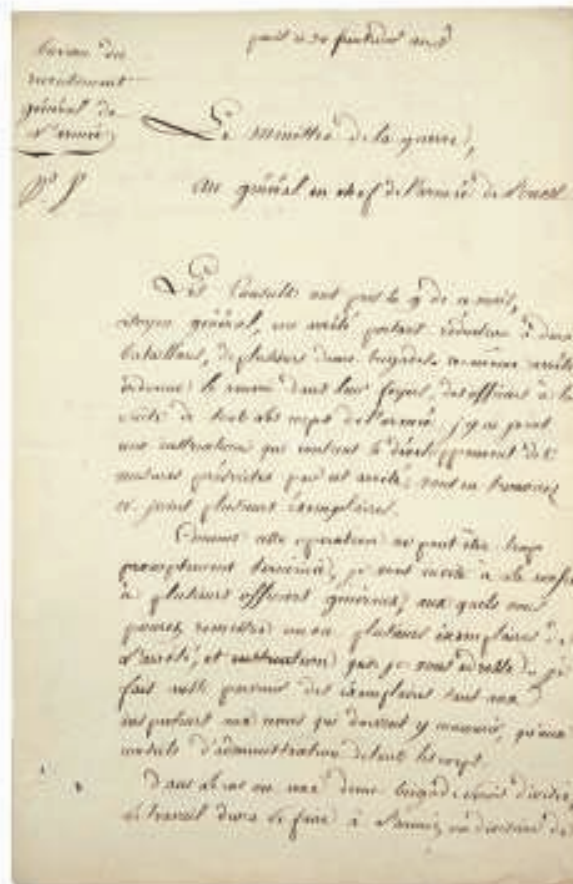 bureau du
recrutement
général de
l'armée
paris le 20 fructidor an 8
Le ministre de la guerre,
au général en chef de l'armée de l'ouest
Les Consuls ont pris le 9 de ce mois,
citoyen général, un arrêté portant réduction à deux
bataillons, de plusieurs demi brigades. ce même arrêté
ordonne le renvoi dans leur foyers, des officiers à la
suite de tout les corps de l'armée. j'y ai joint
une instruction qui contient le développement des
mesures préscrites par cet arrêté; vous en trouverez
ci joint plusieurs exemplaires.
Comme cette opération ne peut être trop
promptement terminée, je vous invite à la confier
à plusieurs officiers généraux, aux quels vous
pourez remettre un ou plusieurs exemplaires de
l'arrêté, et instruction que je vous adresse. je
fait aussi parvenir des exemplaires tant aux
inspecteurs aux revues qui doivent y concourir, qu'aux
conseils d'administration de tout les corps.
Dans le cas ou une demi brigade serait divisée,
le travail devra se faire à l'armée, ou division de